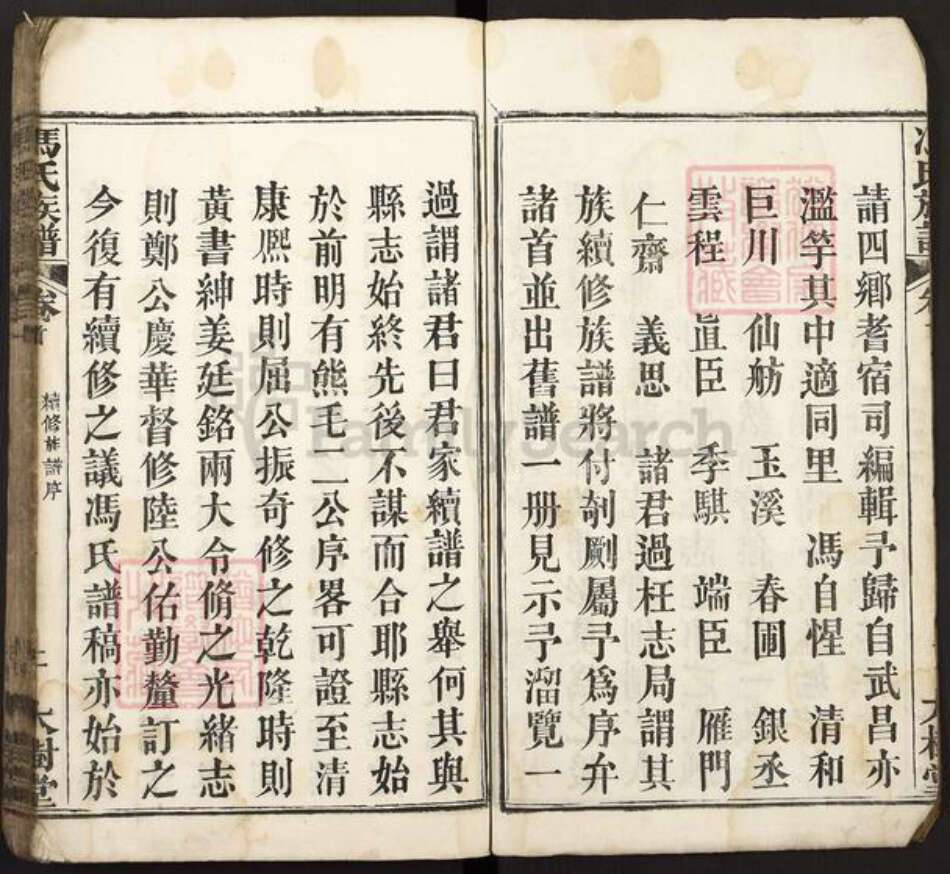 請四鄉耆宿司編輯予歸自武昌亦
濫竽其中適同里 馮自惺 清和
巨川 仙舫 玉溪 春圃 銀丞
雲程 直臣 季騏 端臣 雁門
仁齋 義思 諸君過枉志局謂其
族續修族譜將付剞劂屬予爲序弁
諸首並出舊譜一册見示予溜覽一
過謂諸君曰君家續譜之舉何其與
縣志始終先後不謀而合耶縣志始
於前明有熊毛二公序畧可證至清
康熙時則屈公振奇修之乾隆時則
黃書紳姜廷銘兩大令脩之光緒志
則鄭公慶華督修陸公佑勤釐訂之
今復有續修之議馮氏譜稿亦始於
馮氏族譜
卷首
續修族譜序
大樹堂
FamilySearch